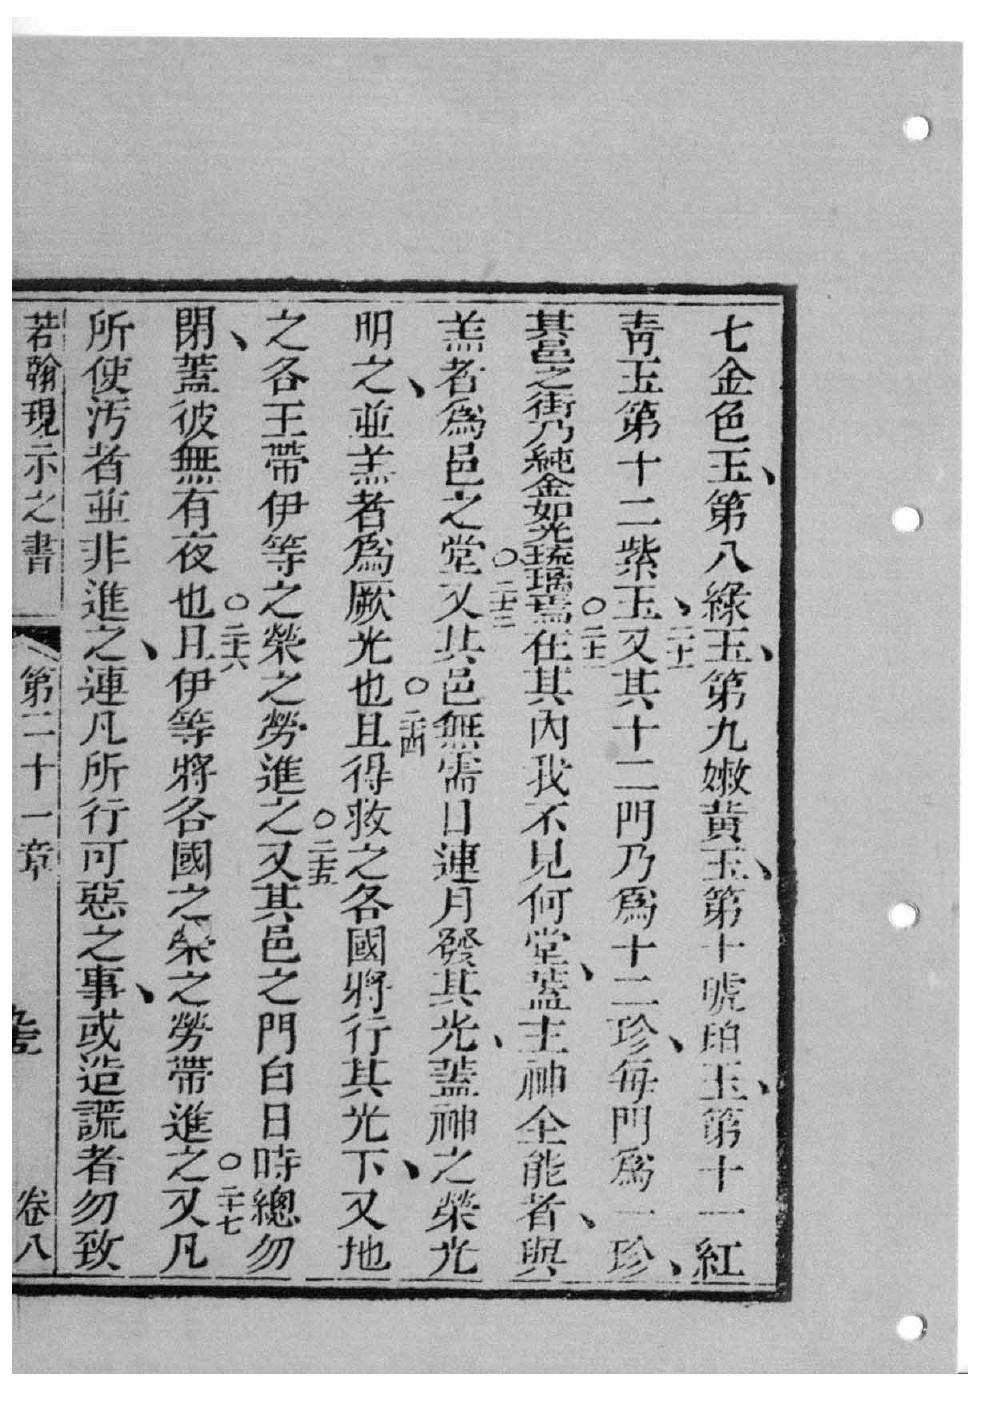 七金色玉、第八綠玉、第九嫩黃玉、第十號珀玉、第十一紅
青玉第十二紫玉、二十一又其十二門乃爲十二珍、每門爲一珍、
其邑之街乃純金如光琉璃焉○二十二在其內我不見何堂、蓋主神全能者、與
羔者爲邑之堂○二十三又其邑無需日連月發其光、蓋神之榮光
明之、並羔者爲厥光也○二十四且得救之各國將行其光下、又地
之各王帶伊等之榮之勞進之○二十五又其邑之門白日時總勿
閉、蓋彼無有夜也○二十六且伊等將各國之榮之勞帶進之○二十七又凡
所使汚者並非進之、連凡所行可惡之事、或造謊者勿致
若翰現示之書 第二十一章 卷八